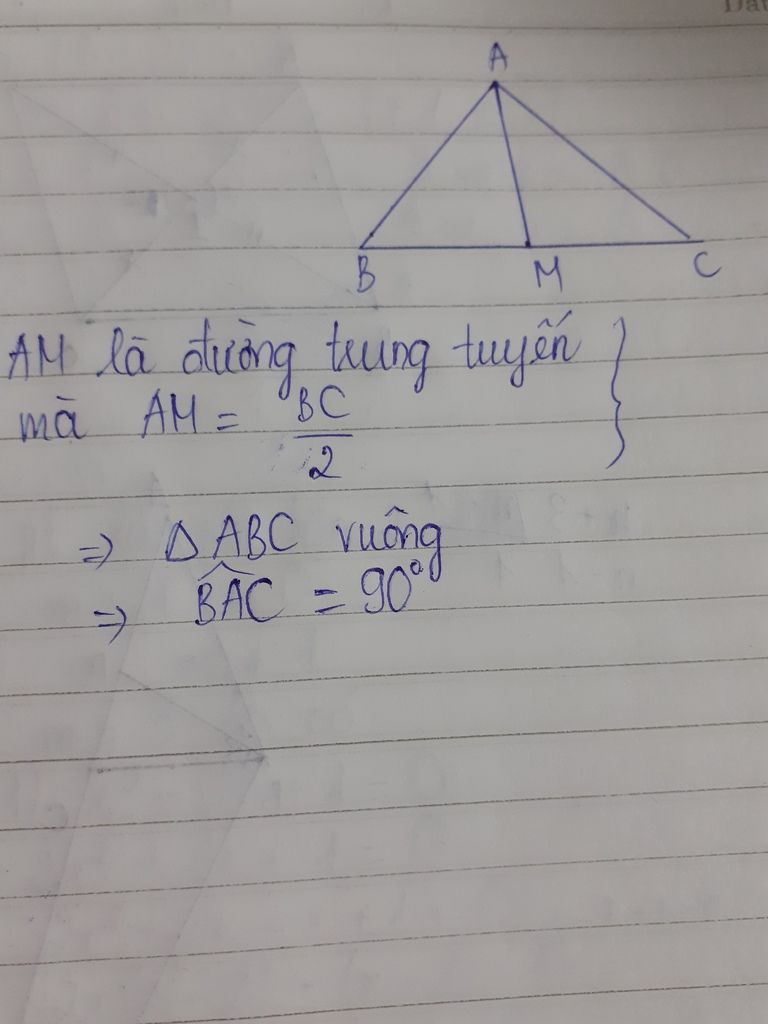 A
B M C
AM là đường trung tuyến }
mà AM = BC/2
=> Δ ABC vuông
=> \widehat{BAC} = 90°